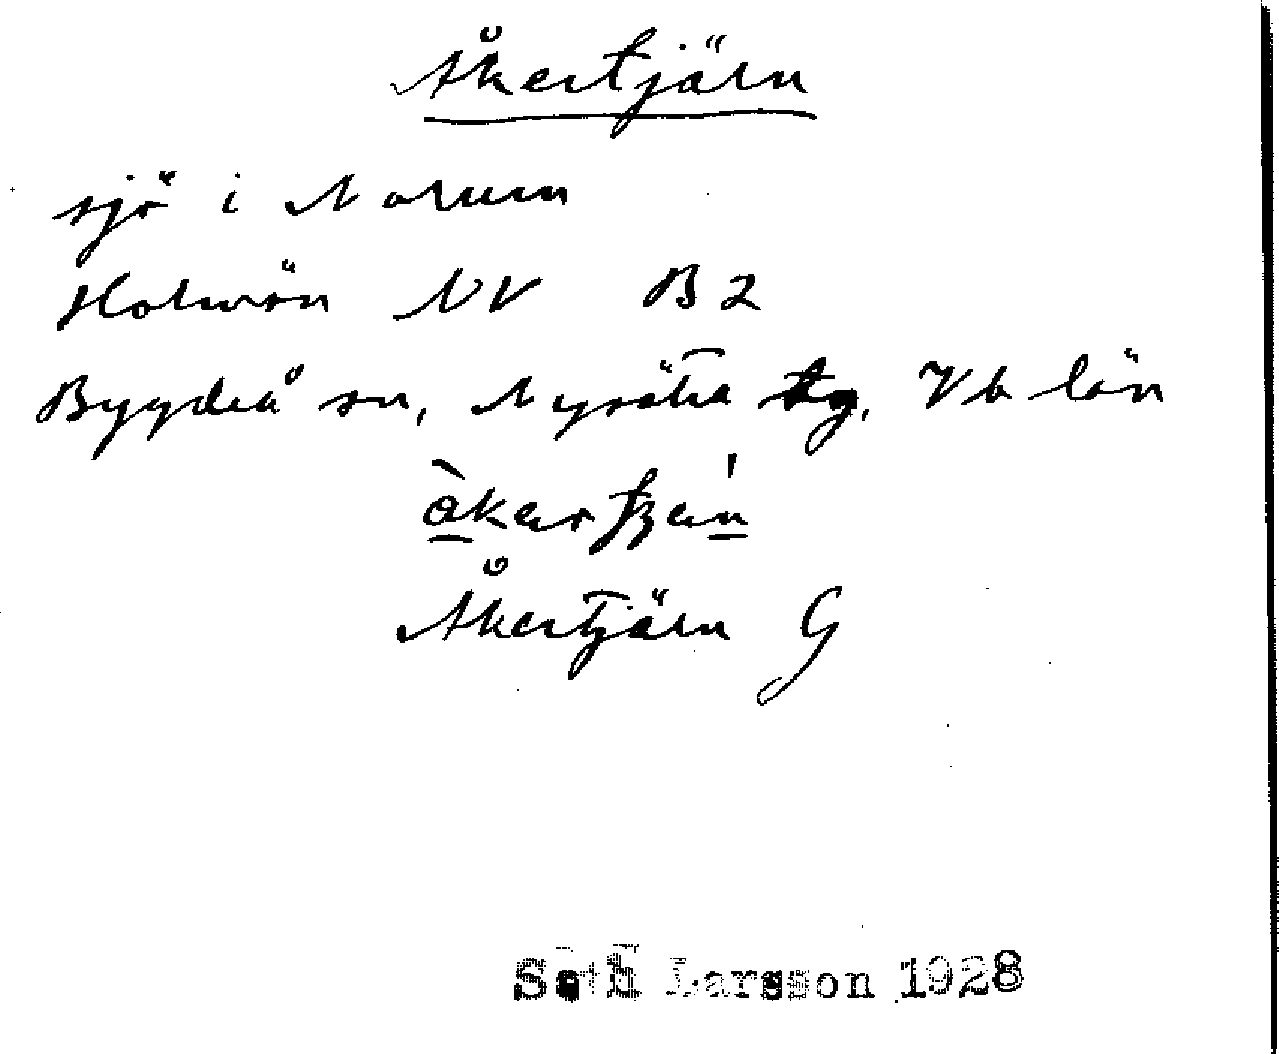 Åkertjärn
sjö i Norum
Holmön NV B2
Bygdeå sn, Nysätra tg, Vb län
Åkertjärn G
Seth Larsson 1928